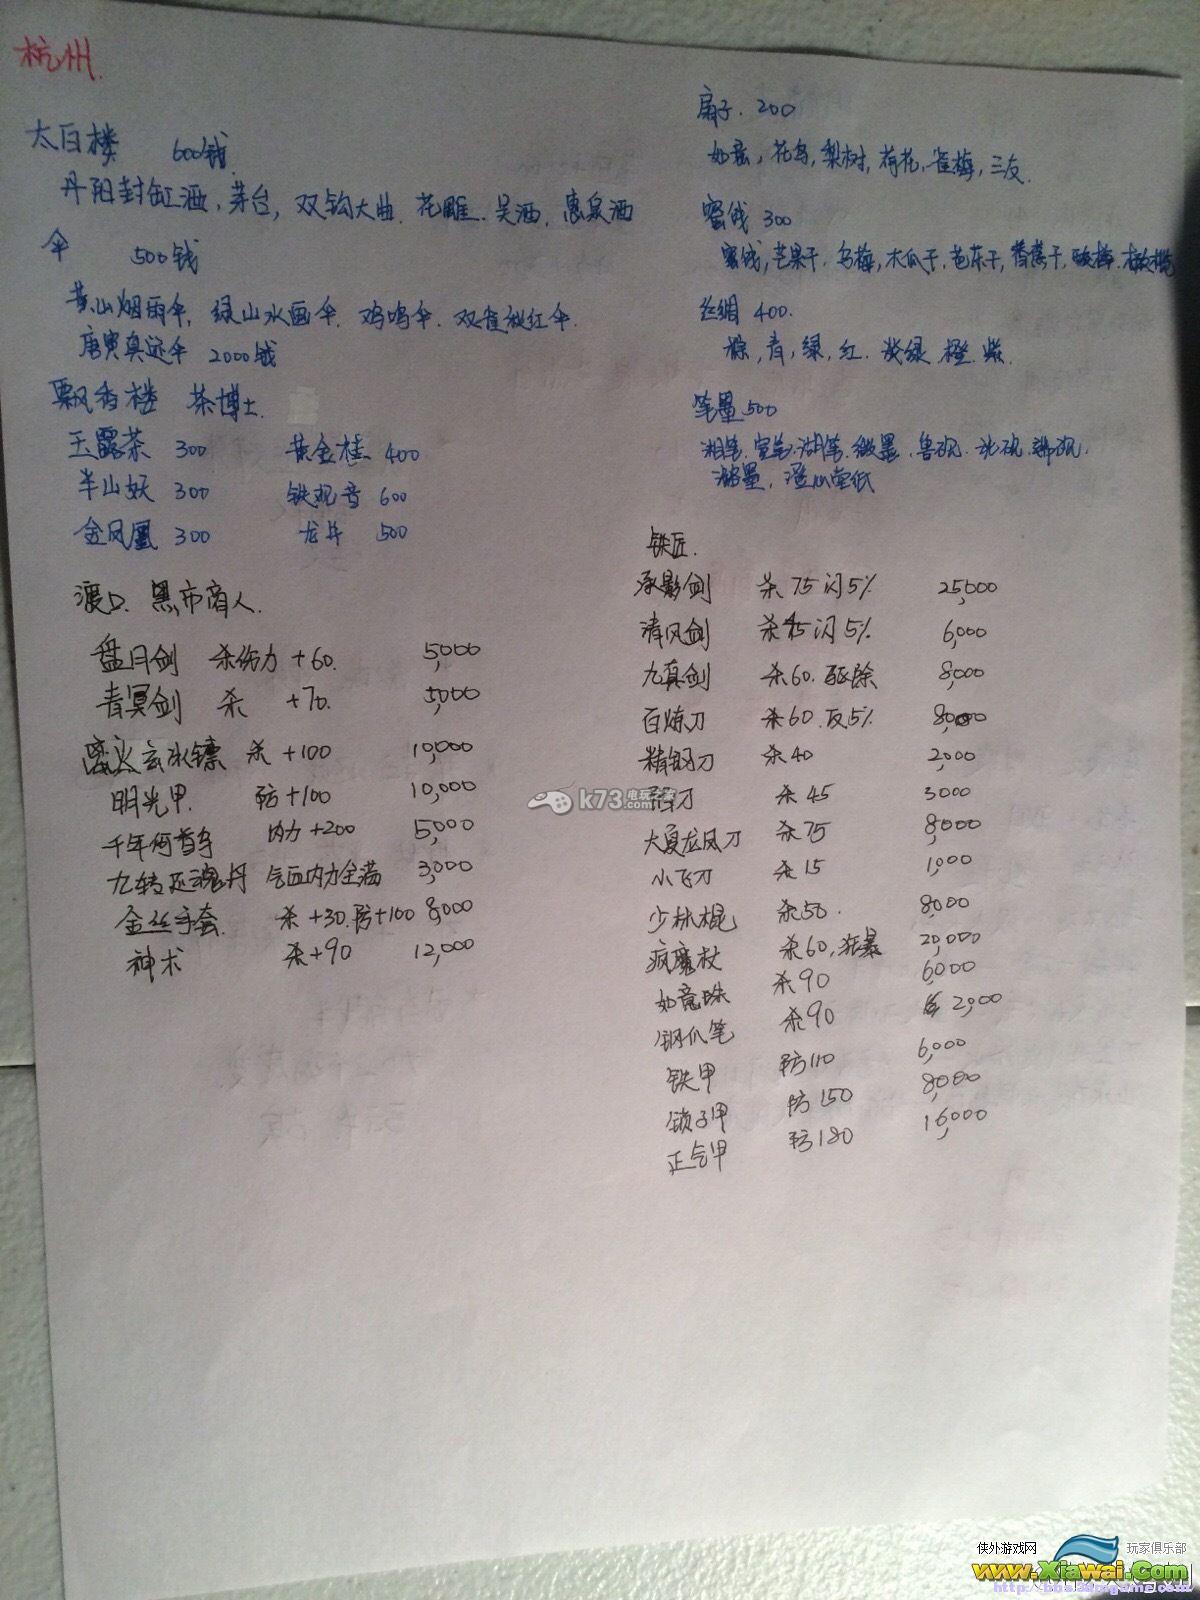 杭州.
太白楼 600钱
丹阳封缸酒, 茅台, 双钩大曲. 花雕. 吴酒. 惠泉酒
伞 500钱
黄山烟雨伞, 绿山水画伞. 鸡鸣伞. 双雀秋红伞.
唐寅真迹伞 2000钱
飘香楼 茶博士.
玉露茶 300 黄金桂 400
半山妖 300 铁观音 600
金凤凰 300 龙井 500
渡口. 黑市商人.
盘月剑 杀伤力 +60. 5,000
青冥剑 杀 +70. 5,000
玄冰镖 杀 +100 10,000
明光甲. 防+100 10,000
千年何首乌 内力+200 5,000
九转还魂丹 气血内力全满 3,000
金丝手套. 杀+30.防+100 8,000
神术 杀+90 12,000
扇子. 200
如意, 花鸟, 梨树, 荷花, 雀梅, 三友.
蜜饯 300
蜜饯, 芒果干. 乌梅, 木瓜干, 芭乐干, 香蕉干, 酸梅. 橄榄
丝绸 400.
棕, 青, 绿, 红. 淡绿 橙. 紫.
笔墨 500
湘笔. 宣笔. 湖笔. 徽墨. 鲁砚. 洮砚.
潞墨, 澄心堂纸
铁匠.
承影剑 杀75闪5% 25,000
清风剑 杀45闪5% 6,000
九真剑 杀60.驱除 8,000
百炼刀 杀60.反5% 8,000
精钢刀 杀40 2,000
刀 杀45 3000
大夏龙凤刀 杀75 8,000
小飞刀 杀15 1,000
少林棍 杀50. 8,000
疯魔杖 杀60,狂暴 20,000
如意珠 杀90 6,000
钢爪笔 杀90 2,000
铁甲 防110 6,000
锁子甲 防150 8,000
正气甲 防180 16,000
k73 电玩之家
侠外游戏网 玩家俱乐部
www.Xiawai.Com